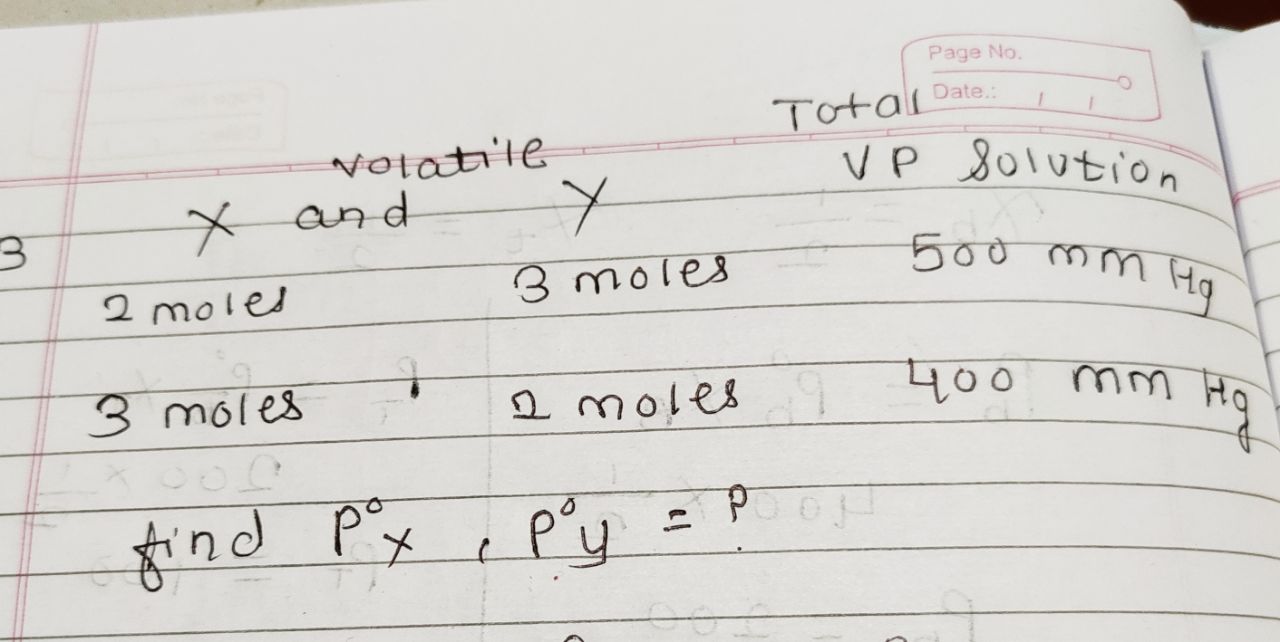 Page No.
Date.: / /
Total
volatile VP Solution
X and Y
3
2 moles 3 moles 500 mm Hg
3 moles 2 moles 400 mm Hg
find P°x , P°y = ?